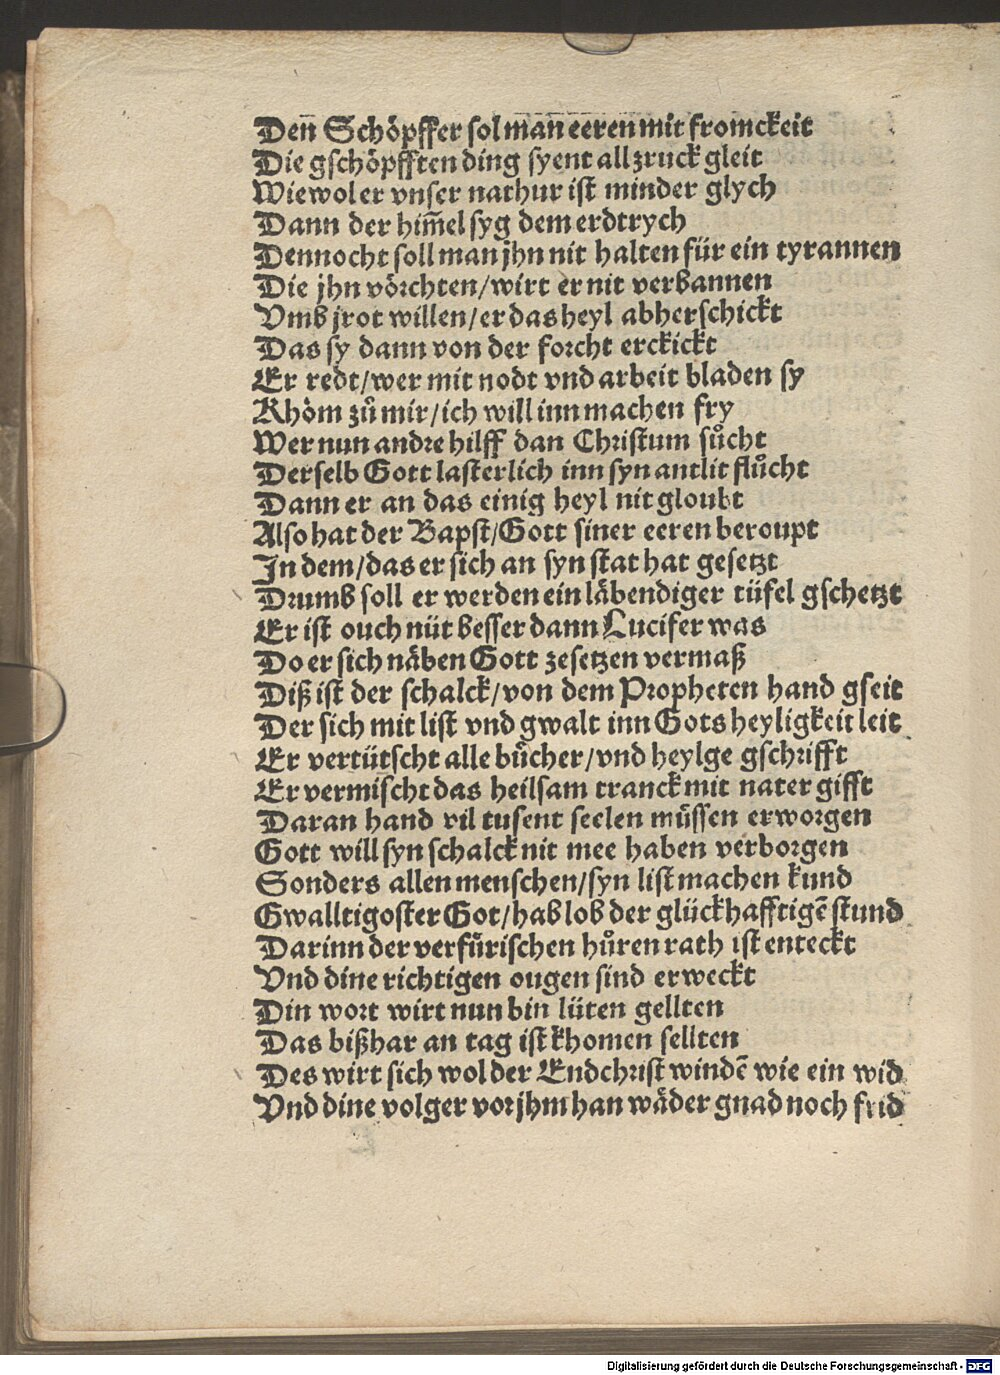 Den̄ Schöpffer sol man̄ eeren mit fromckeit
Die gschöpfften ding syent all zruck gleit
Wiewol er vnser nathur ist minder glych
Dann der him̄el syg dem erdtrych
Dennocht soll man jhn nit halten für ein tyrannen
Die jhn vörchten/wirt er nit verbannen
Vmb jrot willen/er das heyl abherschickt
Das sy dann von der forcht erckickt
Er redt/wer mit nodt vnd arbeit bladen sy
Khöm zů mir/ich will inn machen fry
Wer nun andre hilff dan Christum sůcht
Derselb Gott lasterlich inn syn antlit flůcht
Dann er an das einig heyl nit gloubt
Also hat der Bapst/Gott siner eeren beroupt
In dem/das er sich an syn stat hat gesetzt
Drumb soll er werden ein läbendiger tüfel gschetzt
Er ist ouch nüt besser dann Lucifer was
Do er sich näben Gott zesetzen vermaß
Diß ist der schalck/von dem Propheten hand gseit
Der sich mit list vnd gwalt inn Gots heyligkeit leit
Er vertütscht alle bücher/vnd heylge gschrifft
Er vermischt das heilsam tranck mit nater gifft
Daran hand vil tusent seelen müssen erworgen
Gott will syn schalck nit mee haben verborgen
Sonders allen menschen/syn list machen kund
Gwalltigoster Got/hab lob der glückhafftigē stund
Darinn der verfürischen hůren rath ist enteckt
Vnd dine richtigen ougen sind erweckt
Din wort wirt nun bin lüten gellten
Das bißhar an tag ist khomen sellten
Des wirt sich wol der Endchrist windē wie ein wid
Vnd dine volger vor jhm han wäder gnad noch frid
Digitalisierung gefördert durch die Deutsche Forschungsgemeinschaft - DFG